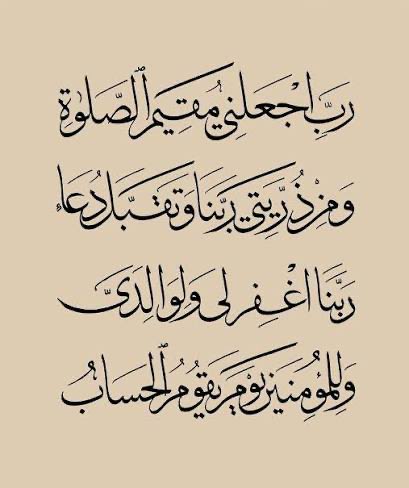 رَبِّ اجْعَلْنِي مُقِيمَ ٱلصَّلَوٰةِ
وَمِنْ ذُرِّيَّتِي رَبَّنَا وَتَقَبَّلْ دُعَاءِ
رَبَّنَا اغْفِرْ لِى وَلِوَالِدَىَّ
وَلِلْمُؤْمِنِينَ يَوْمَ يَقُومُ ٱلْحِسَابُ